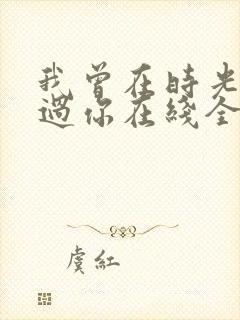 我曾在时光
過你在綫全
虞紅